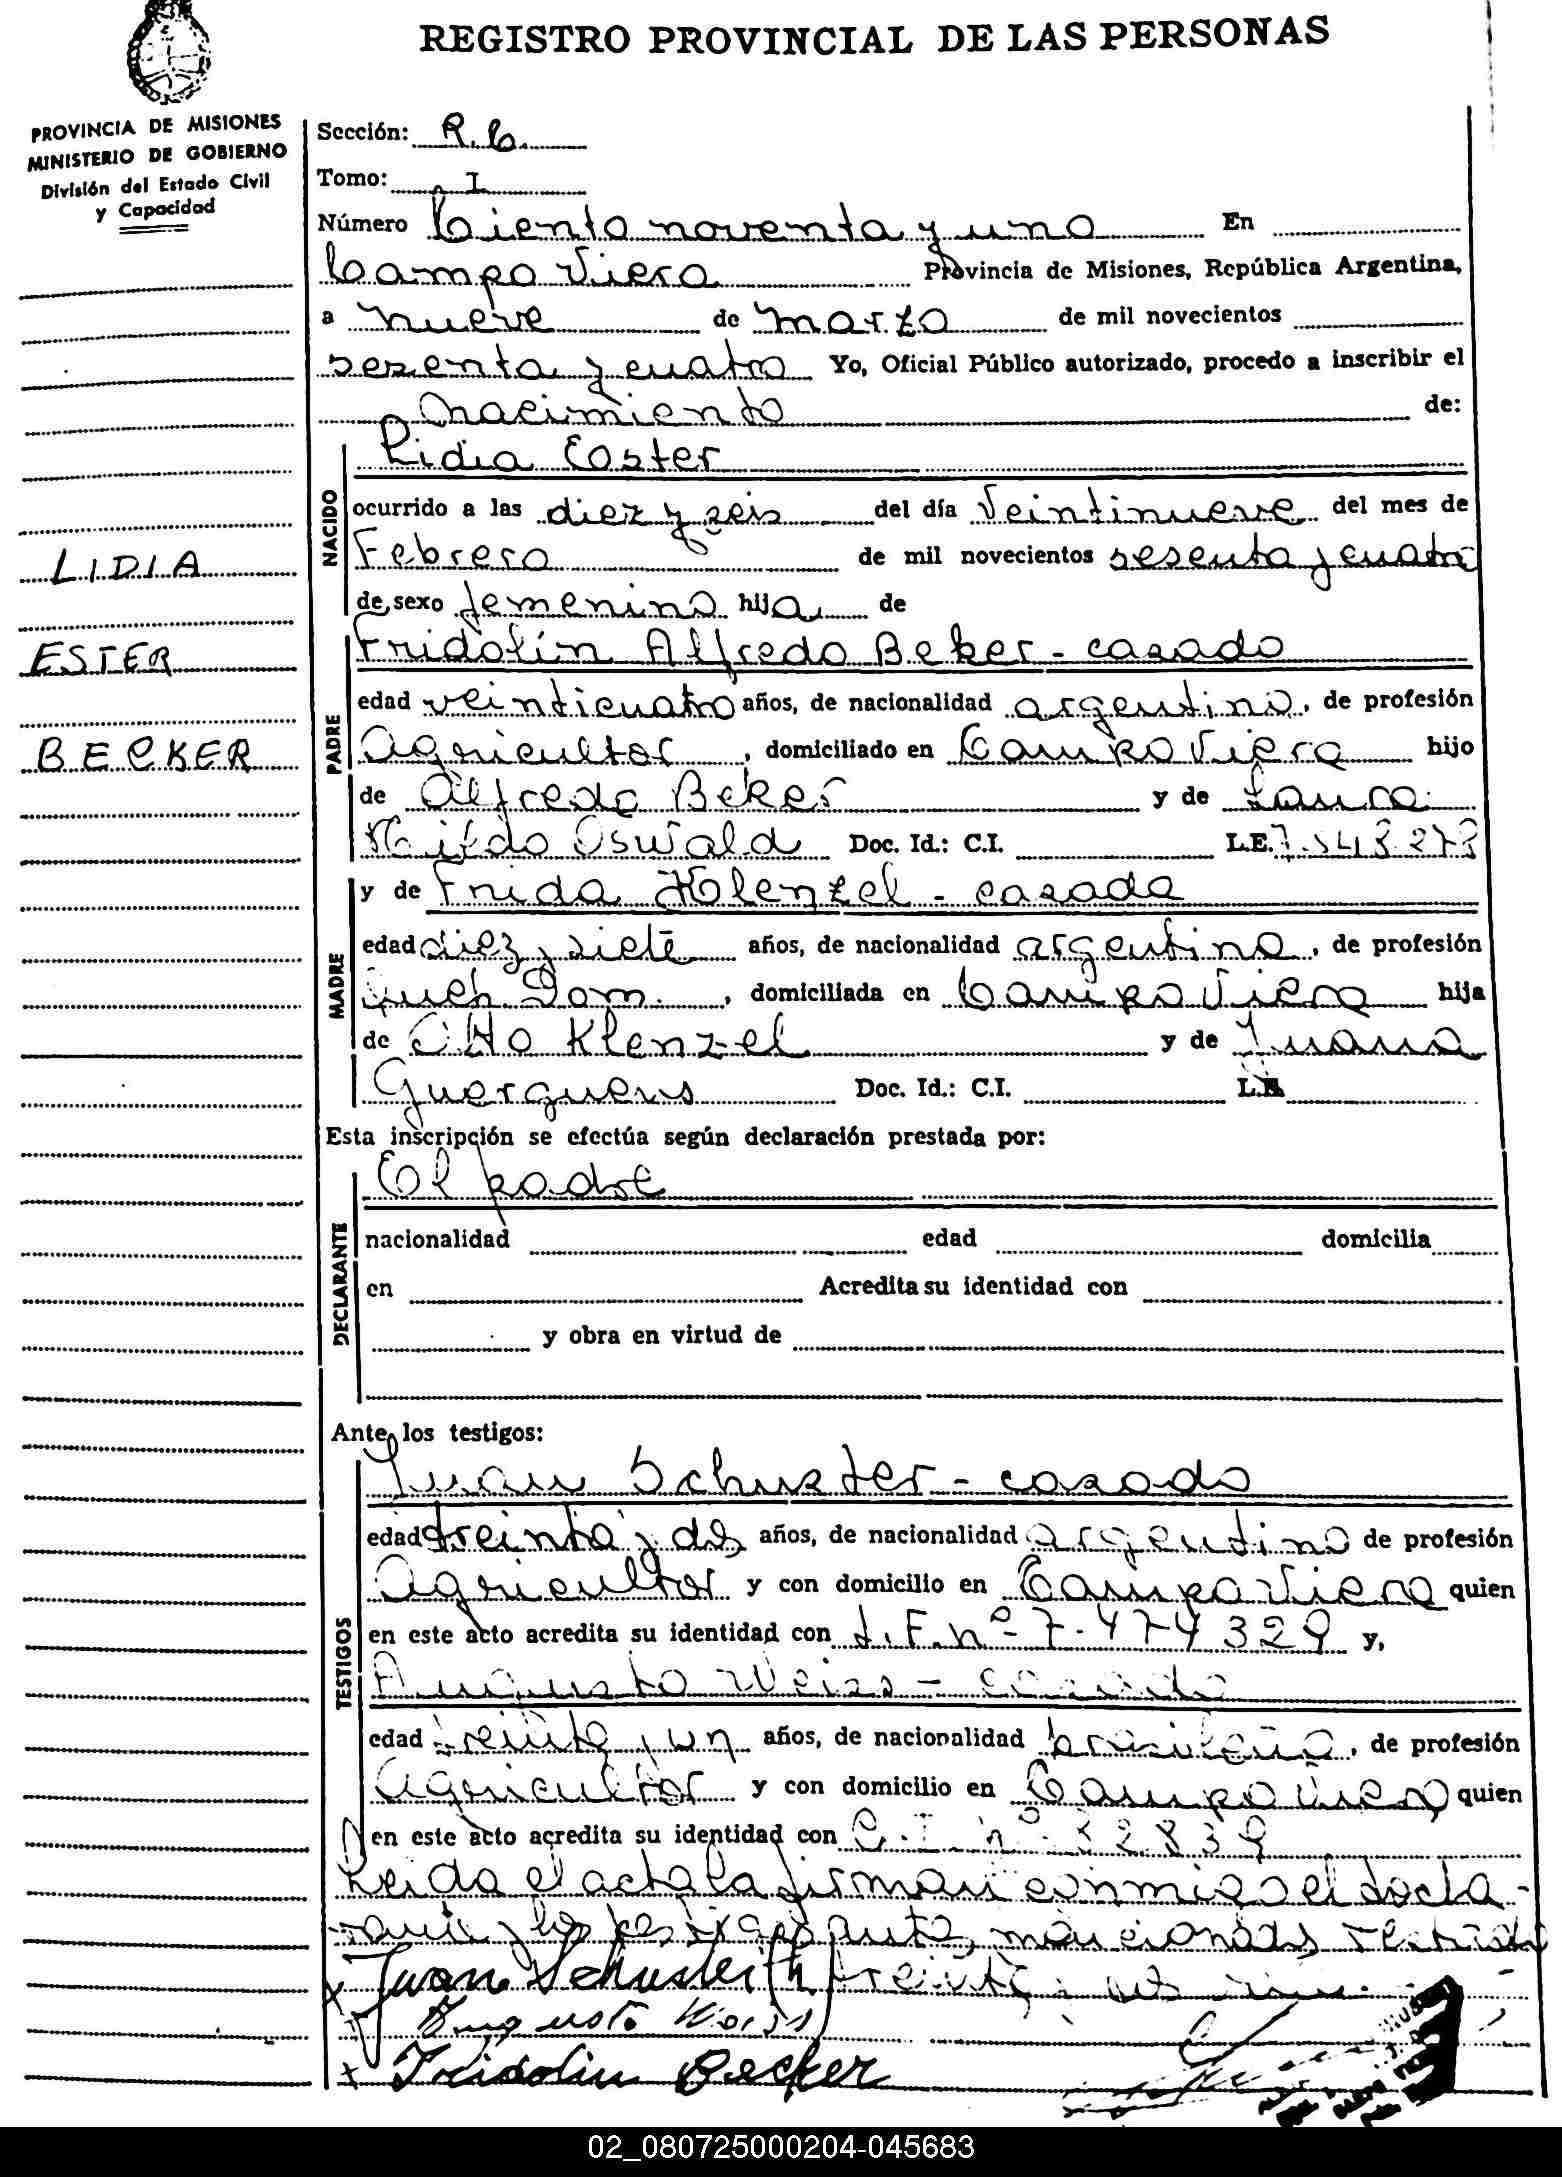 REGISTRO PROVINCIAL DE LAS PERSONAS
PROVINCIA DE MISIONES
MINISTERIO DE GOBIERNO
División del Estado Civil
y Capacidad
LIDIA
ESTER
BECKER
Sección: R.C.
Tomo: I
Número Ciento noventa y uno En
Campo Viera Provincia de Misiones, República Argentina,
a nueve de marzo de mil novecientos
sesenta y cuatro Yo, Oficial Público autorizado, procedo a inscribir el
nacimiento de:
NACIDO
Lidia Ester
ocurrido a las diez y seis del día Veintinueve del mes de
Febrero de mil novecientos sesenta y cuatro
de sexo femenino hija de
PADRE
Fridolin Alfredo Beker - casado
edad veinticuatro años, de nacionalidad argentino, de profesión
Agricultor, domiciliado en Campo Viera hijo
de Alfredo Beker y de Laura
Oswald Doc. Id.: C.I. L.E. 7.543.273
MADRE
y de Frida Klenzel - casada
edad diez y siete años, de nacionalidad argentina, de profesión
Dom., domiciliada en Campo Viera hija
de Otto Klenzel y de Juana
Guerguens Doc. Id.: C.I. L.E.
Esta inscripción se efectúa según declaración prestada por:
DECLARANTE
El padre
nacionalidad edad domicilia
en Acredita su identidad con
y obra en virtud de
Ante los testigos:
TESTIGOS
Juan Schuster - casado
edad treinta y dos años, de nacionalidad argentino de profesión
Agricultor y con domicilio en Campo Viera quien
en este acto acredita su identidad con nº 7.474329 y,
Augusto Weiss - casado
edad treinta y un años, de nacionalidad brasileña, de profesión
Agricultor y con domicilio en Campo Viera quien
en este acto acredita su identidad con C.I. nº 32.839
Leida el acta la firman conmigo el decla-
rante y los testigos antes mencionados
Juan Schuster
Augusto Weiss
Fridolin Becker
02_080725000204-045683